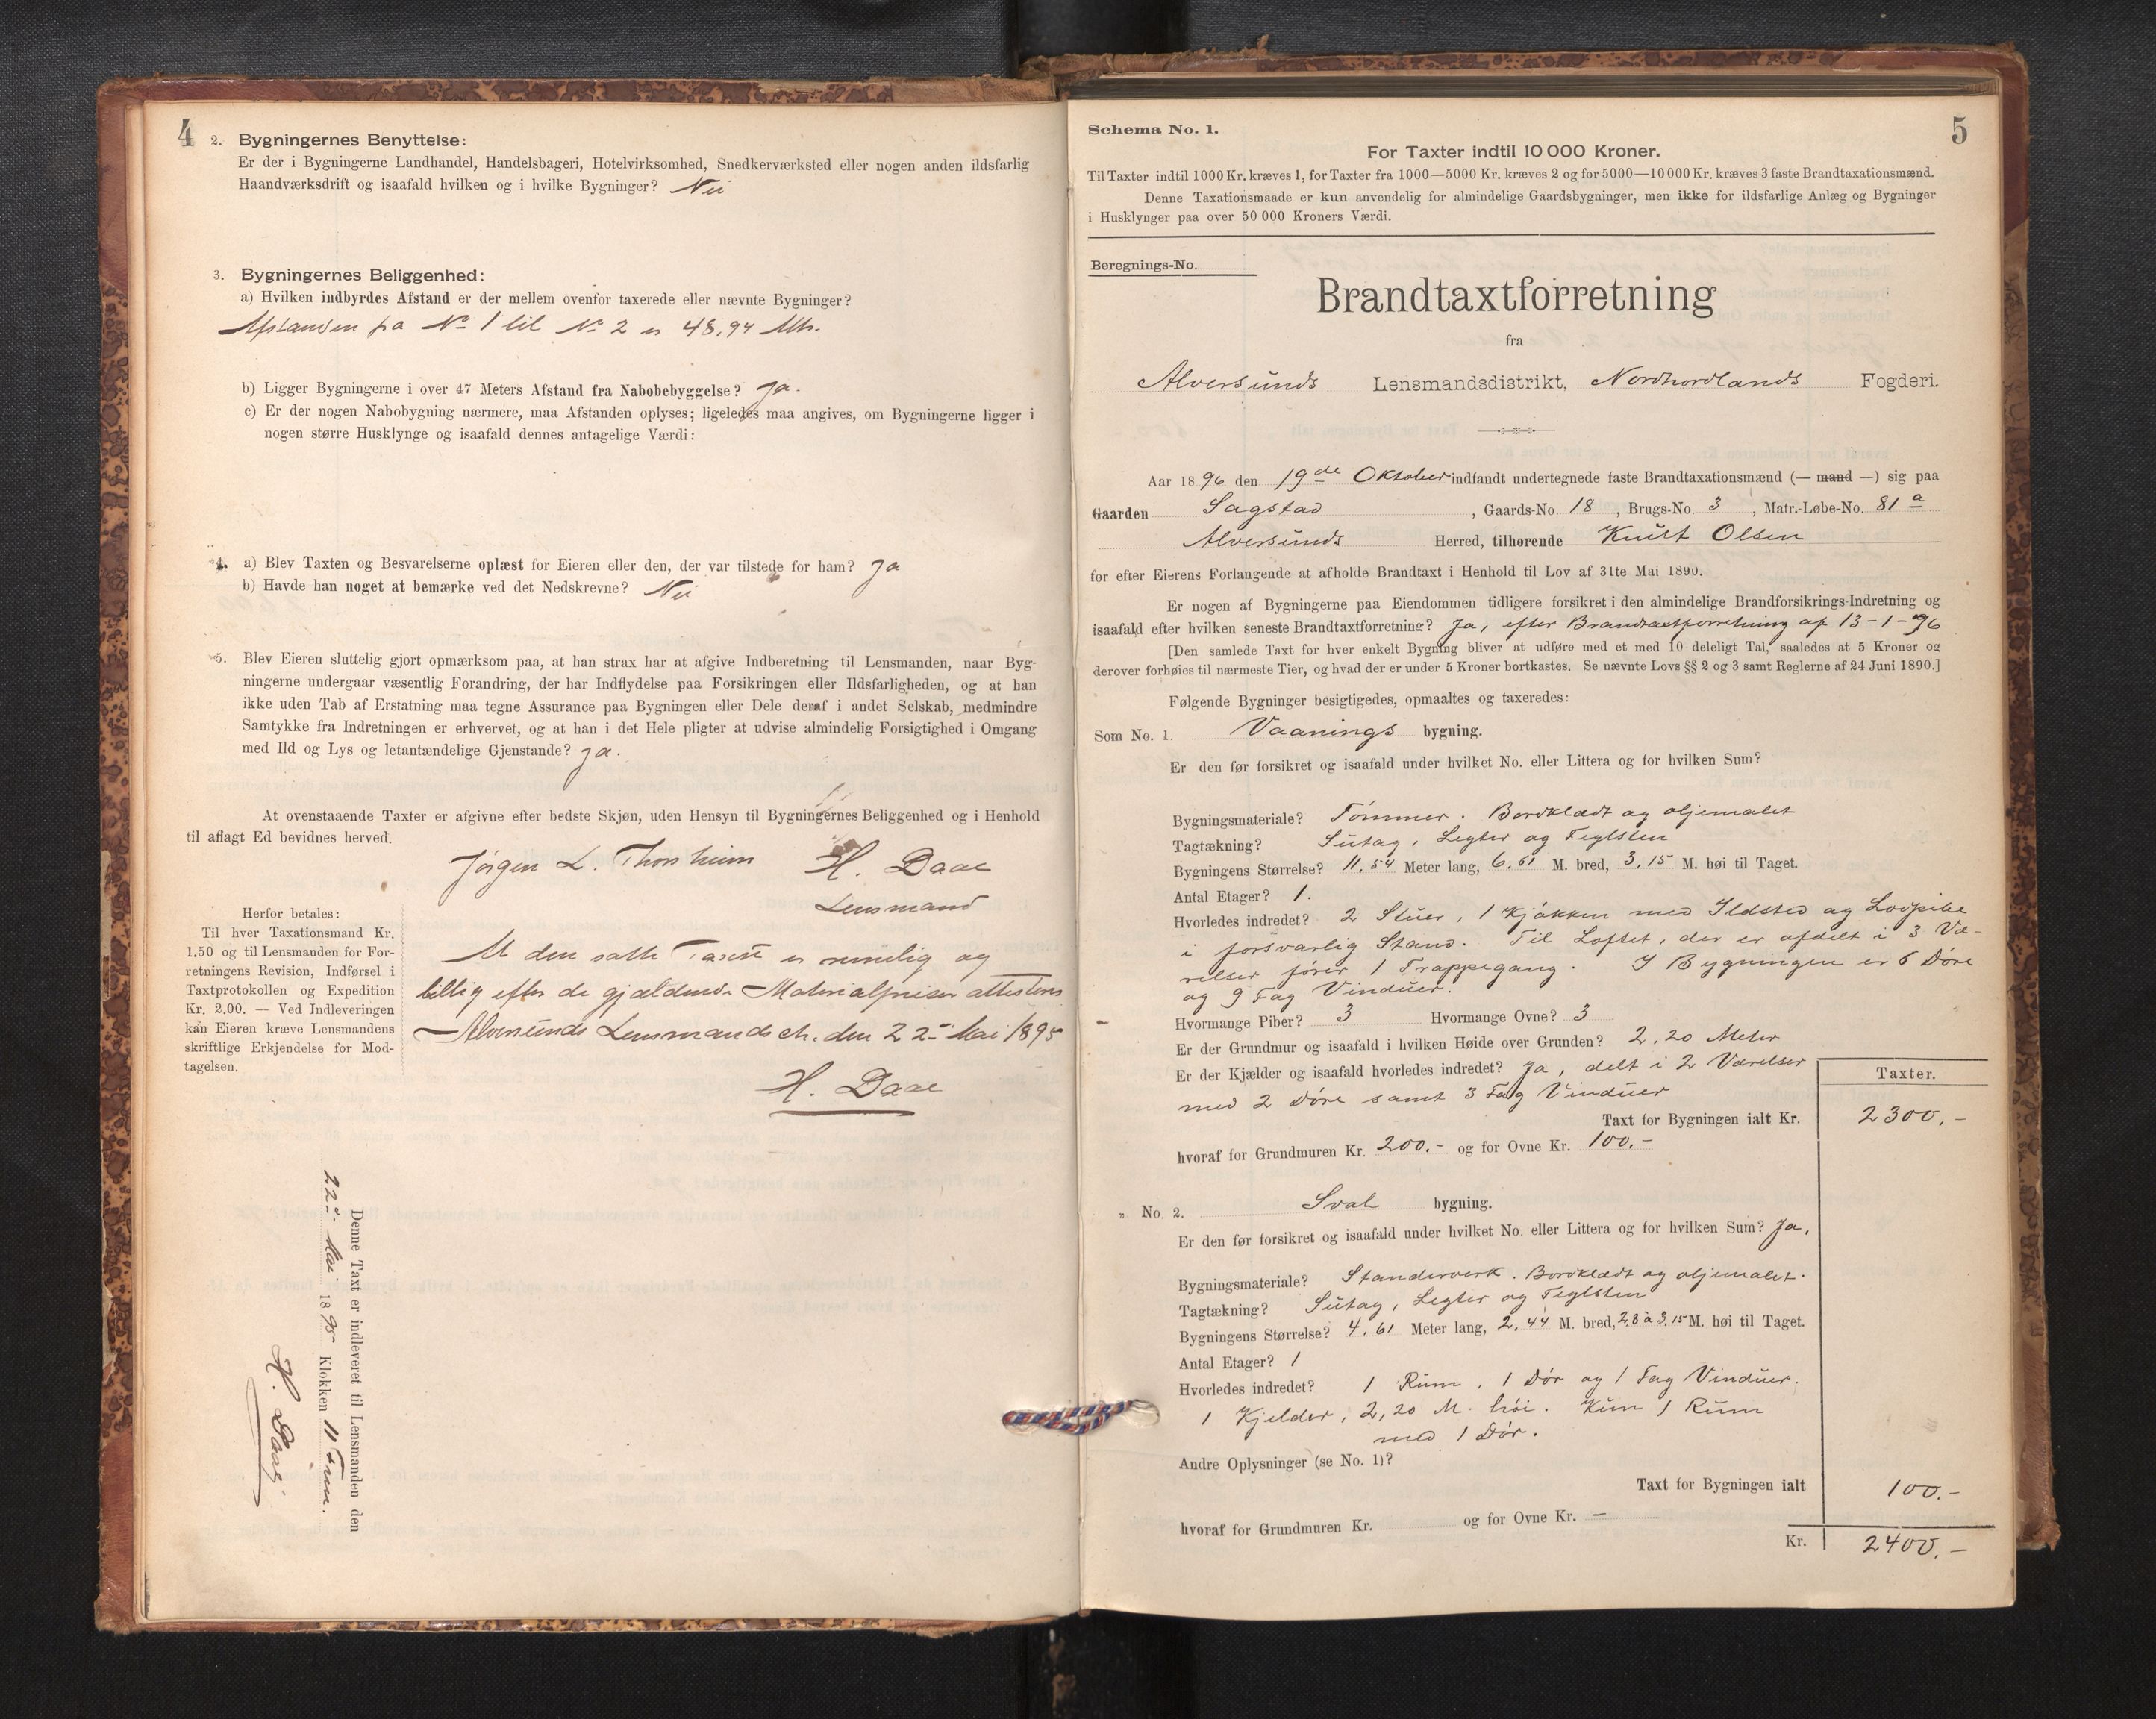 4
2. Bygningernes Benyttelse:
Er der i Bygningerne Landhandel, Handelsbageri, Hotelvirksomhed, Snedkerværksted eller nogen anden ildsfarlig
Haandværksdrift og isaafald hvilken og i hvilke Bygninger? Nei
3. Bygningernes Beliggenhed:
a) Hvilken indbyrdes Afstand er der mellem ovenfor taxerede eller nævnte Bygninger?
Afstanden fra No 1 til No 2 er 48,94 Mtr.
b) Ligger Bygningerne i over 47 Meters Afstand fra Nabobebyggelse? Ja.
c) Er der nogen Nabobygning nærmere, maa Afstanden oplyses; ligeledes maa angives, om Bygningerne ligger i
nogen større Husklynge og isaafald dennes antagelige Værdi:
4. a) Blev Taxten og Besvarelserne oplæst for Eieren eller den, der var tilstede for ham? Ja
b) Havde han noget at bemærke ved det Nedskrevne? Nei
5. Blev Eieren sluttelig gjort opmærksom paa, at han strax har at afgive Indberetning til Lensmanden, naar Byg-
ningerne undergaar væsentlig Forandring, der har Indflydelse paa Forsikringen eller Ildsfarligheden, og at han
ikke uden Tab af Erstatning maa tegne Assurance paa Bygningen eller Dele deraf i andet Selskab, medmindre
Samtykke fra Indretningen er erhvervet, og at han i det Hele pligter at udvise almindelig Forsigtighed i Omgang
med Ild og Lys og letantændelige Gjenstande? Ja.
At ovenstaaende Taxter er afgivne efter bedste Skjøn, uden Hensyn til Bygningernes Beliggenhed og i Henhold
til aflagt Ed bevidnes herved.
Jørgen L. Thorsheim H. Daae
Lensmand
Herfor betales:
Til hver Taxationsmand Kr.
1.50 og til Lensmanden for For-
retningens Revision, Indførsel i
Taxtprotokollen og Expedition
Kr. 2.00. — Ved Indleveringen
kan Eieren kræve Lensmandens
skriftlige Erkjendelse for Mod-
tagelsen.
At den satte Taxt er rimelig og
billig efter de gjældende Materialpriser attesteres
Alversunds Lensmandsktr. den 22 Mai 1895
H. Daae
Denne Taxt er indleveret til Lensmanden den
22de Mai 1895 Klokken 11 Form.
H. Daae
5
Schema No. 1.
For Taxter indtil 10 000 Kroner.
Til Taxter indtil 1000 Kr. kræves 1, for Taxter fra 1000—5000 Kr. kræves 2 og for 5000—10 000 Kr. kræves 3 faste Brandtaxationsmænd.
Denne Taxationsmaade er kun anvendelig for almindelige Gaardsbygninger, men ikke for ildsfarlige Anlæg og Bygninger
i Husklynger paa over 50 000 Kroners Værdi.
Beregnings-No.
Brandtaxtforretning
fra
Alversunds Lensmandsdistrikt, Nordhordlands Fogderi.
Aar 1896 den 19de Oktober indfandt undertegnede faste Brandtaxationsmænd (— mand —) sig paa
Gaarden Sagstad, Gaards-No. 18, Brugs-No. 3, Matr.-Løbe-No. 81 a
Alversunds Herred, tilhørende Knut Olsen
for efter Eierens Forlangende at afholde Brandtaxt i Henhold til Lov af 31te Mai 1890.
Er nogen af Bygningerne paa Eiendommen tidligere forsikret i den almindelige Brandforsikrings-Indretning og
isaafald efter hvilken seneste Brandtaxtforretning? Ja, efter Brandtaxtforretning af 13-1-96
[Den samlede Taxt for hver enkelt Bygning bliver at udføre med et med 10 deleligt Tal, saaledes at 5 Kroner og
derover forhøies til nærmeste Tier, og hvad der er under 5 Kroner bortkastes. Se nævnte Lovs §§ 2 og 3 samt Reglerne af 24 Juni 1890.]
Følgende Bygninger besigtigedes, opmaaltes og taxeredes:
Som No. 1. Vaanings bygning.
Er den før forsikret og isaafald under hvilket No. eller Littera og for hvilken Sum?
Bygningsmateriale? Tømmer. Bordklædt og oljemalet
Tagtækning? Sutag, Legter og Teglsten
Bygningens Størrelse? 11,54 Meter lang, 6,61 M. bred, 3,15 M. høi til Taget.
Antal Etager? 1.
Hvorledes indredet? 2 Stuer, 1 Kjøkken med Ildsted og Lovpibe
i forsvarlig Stand. Til Loftet, der er afdelt i 3 Væ-
relser fører 1 Trappegang. I Bygningen er 6 Døre
og 9 Fag Vinduer.
Hvormange Piber? 3 Hvormange Ovne? 3
Er der Grundmur og isaafald i hvilken Høide over Grunden? 2,20 Meter
Er der Kjælder og isaafald hvorledes indredet? Ja, delt i 2 Værelser
med 2 Døre samt 3 Fag Vinduer
Taxter.
Taxt for Bygningen ialt Kr. 2300,-
hvoraf for Grundmuren Kr. 200.- og for Ovne Kr. 100.-
„ No. 2. Sval bygning.
Er den før forsikret og isaafald under hvilket No. eller Littera og for hvilken Sum? Ja.
Bygningsmateriale? Standerverk. Bordklædt og oljemalet.
Tagtækning? Sutag, Legter og Teglsten
Bygningens Størrelse? 4,61 Meter lang, 2,44 M. bred, 2,8 à 3,15 M. høi til Taget.
Antal Etager? 1
Hvorledes indredet? 1 Rum, 1 Dør og 1 Fag Vinduer.
1 Kjelder, 2,20 M. høi. Kun 1 Rum
med 1 Dør.
Andre Oplysninger (se No. 1)?
Taxt for Bygningen ialt 100.-
hvoraf for Grundmuren Kr. og for Ovne Kr. —
Kr. 2400.-